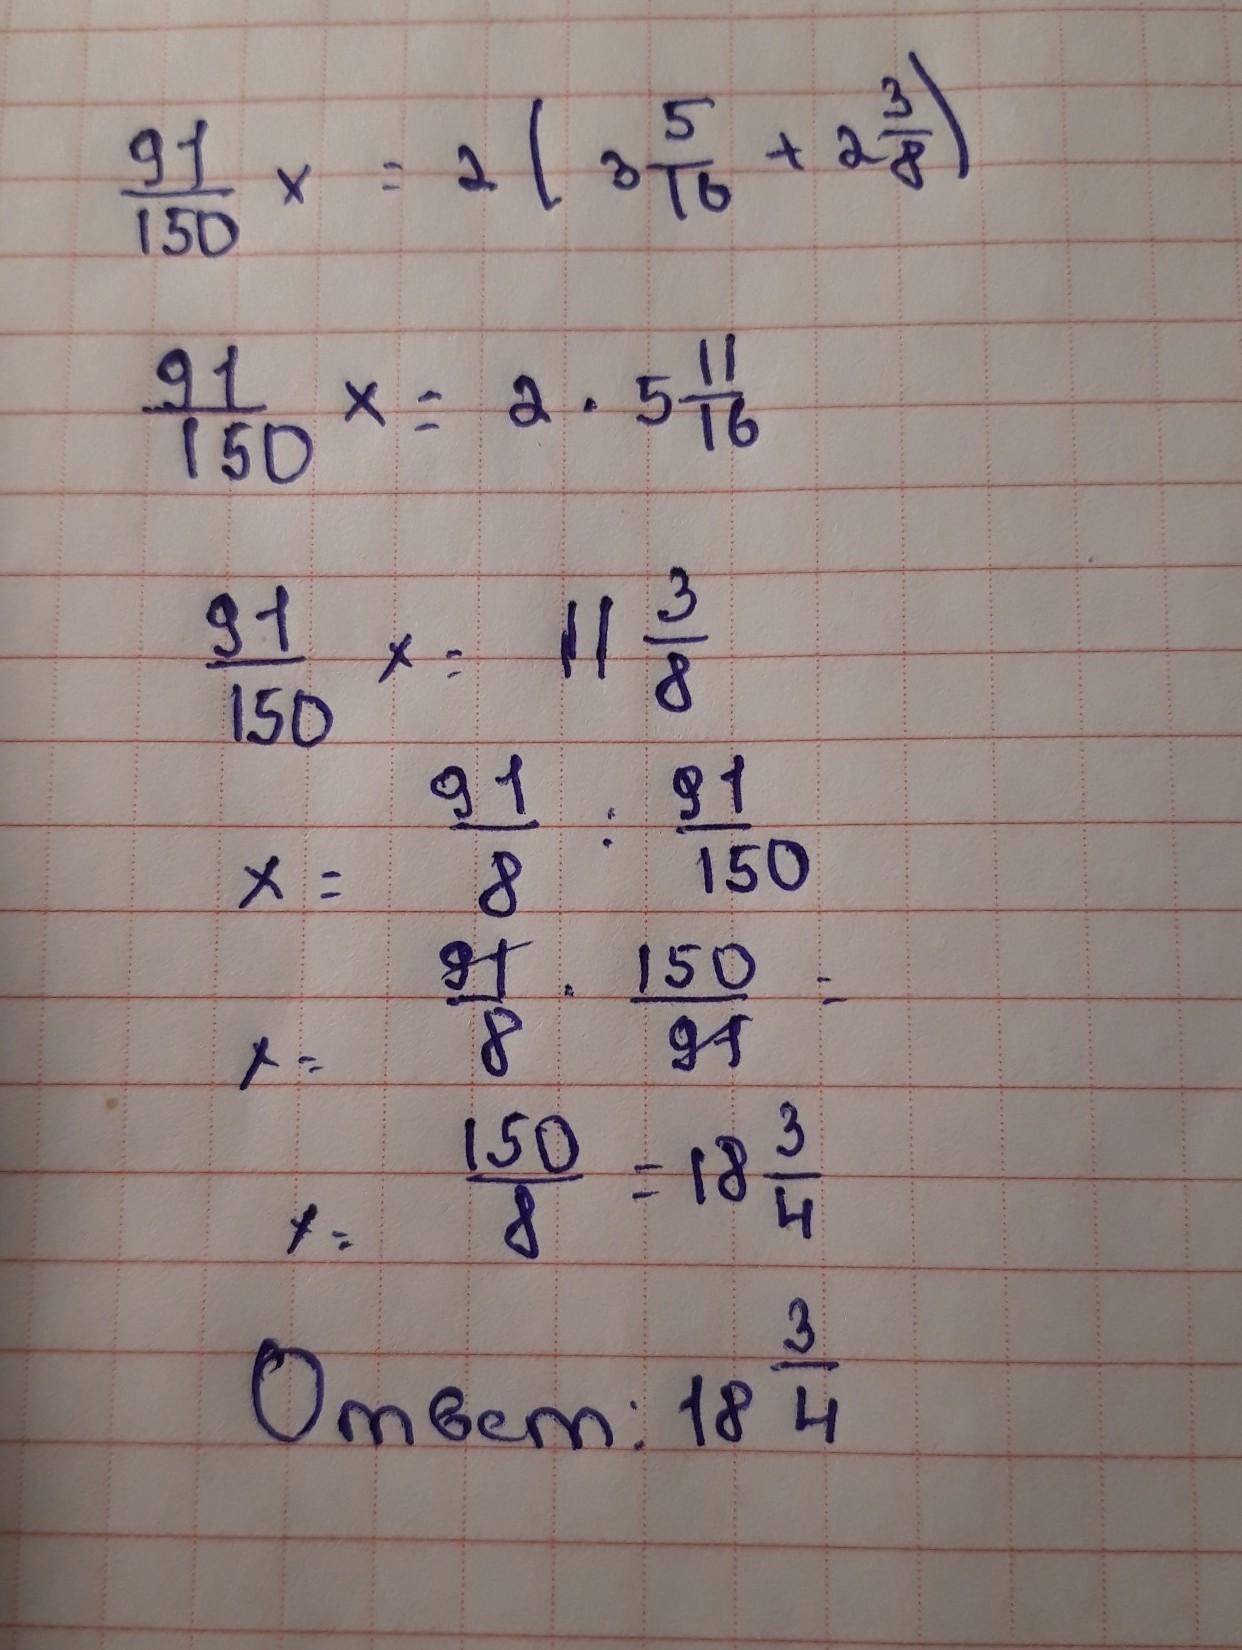 91/150 x = 2 ( 3 5/16 + 2 3/8 )
91/150 x = 2 · 5 11/16
91/150 x = 11 3/8
x = 91/8 : 91/150
x = 91/8 · 150/91 =
x = 150/8 = 18 3/4
Ответ: 18 3/4